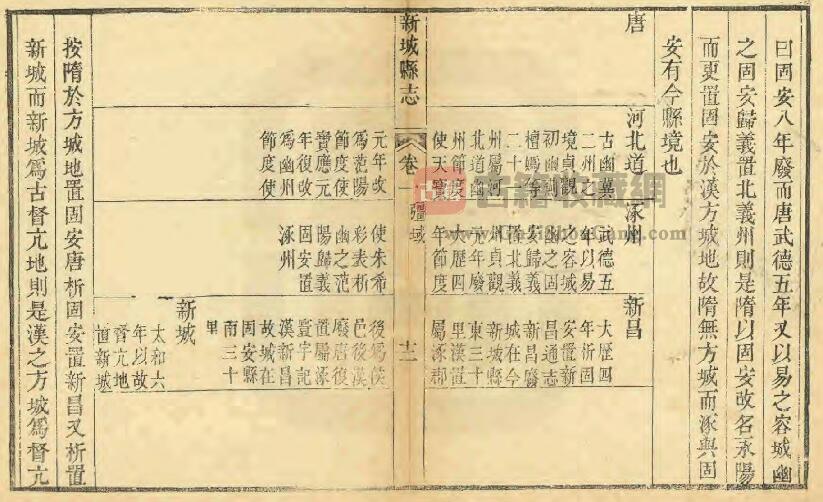 曰固安八年廢而唐武德五年又以易之容城幽
之固安歸義置北義州則是隋以固安改名永陽
而更置固安於漢方城地故隋無方城而涿與固
安有今縣境也
唐
河北道
古幽冀
二州之
境貞觀
初幽涿
檀嬀等
二十一
州屬河
北道幽
州節度
使天寶
元年改
爲范陽
節度使
寶應元
年復改
爲幽州
節度使
涿州
武德五
年以易
之容城
幽之固
安歸義
置北義
州貞觀
元年廢
大歷四
年節度
使朱希
彩表析
幽之范
陽歸義
固安置
涿州
新昌
大歷四
年析固
安置新
昌通志
新昌廢
城在今
新城縣
東三十
里漢置
屬涿郡
後爲侯
邑後漢
廢唐復
置屬涿
寰宇記
漢新昌
故城在
固安縣
南三十
里
新城
太和六
年以故
督亢地
置新城
新城縣志
卷一
疆域
十二
按隋於方城地置固安唐析固安置新昌又析置
新城而新城爲古督亢地則是漢之方城爲督亢
古籍收藏網